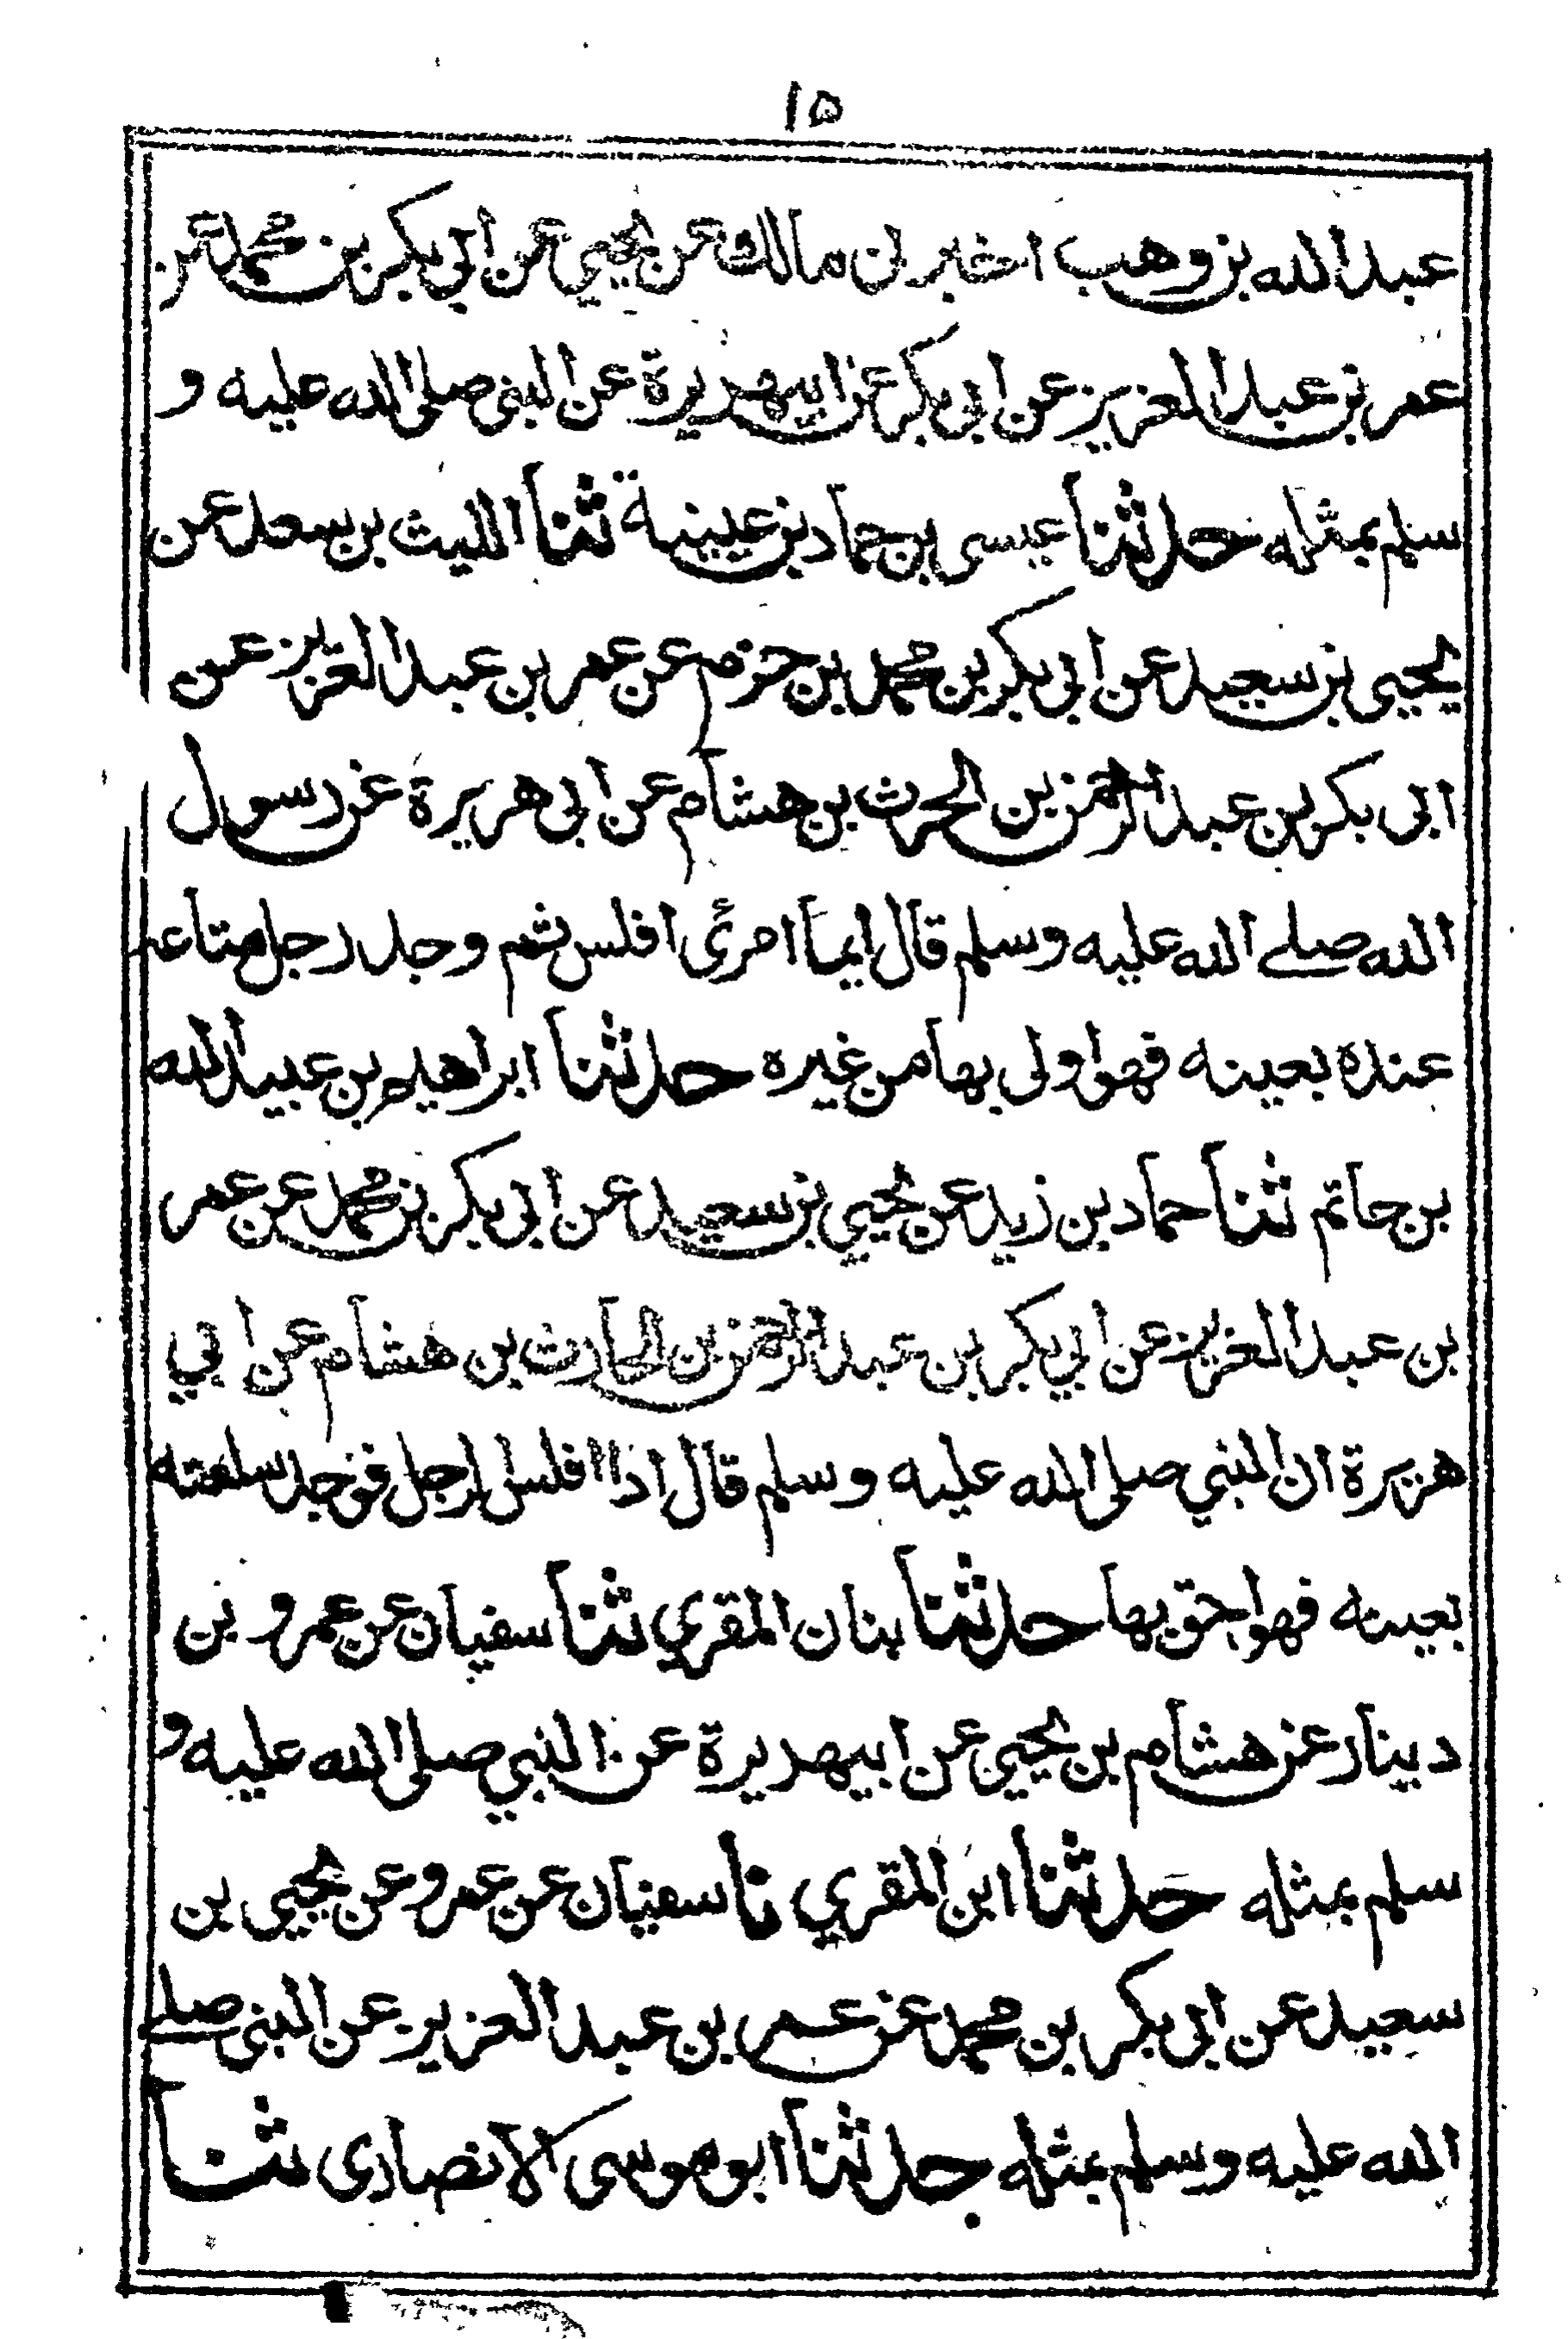 ١٥
عبد الله بن وهب اخبرنى مالك عن يحيي عن ابي بكر بن محمد عن
عمر بن عبد العزيز عن ابي بكر عن ابيهريرة عن النبي صلى الله عليه و
سلم بمثله حدثنا عيسى بن حماد بن عيينة ثنا الليث بن سعد عن
يحيى بن سعيد عن ابي بكر بن محمد بن حزم عن عمر بن عبد العزيز عن
ابي بكر بن عبد الرحمن بن الحرث بن هشام عن ابي هريرة عن رسول
الله صلے الله عليه وسلم قال ايما امرئ افلس ثم وجد رجل متاعه
عنده بعينه فهو اولى بها من غيره حدثنا ابراهيم بن عبيد الله
بن حاتم ثنا حماد بن زيد عن يحيي بن سعيد عن ابي بكر بن محمد عن عمر
بن عبد العزيز عن ابي بكر بن عبد الرحمن بن الحارث بن هشام عن ابي
هريرة ان النبي صلى الله عليه وسلم قال اذا افلس الرجل فوجد سلعته
بعينه فهو احق بها حدثنا بنان المقري ثنا سفيان عن عمرو بن
دينار عن هشام بن يحيي عن ابيهريرة عن النبي صلى الله عليه و
سلم بمثله حدثنا ابن المقري نا سفيان عن عمرو عن يحيي بن
سعيد عن ابي بكر بن محمد عن عمر بن عبد العزيز عن النبي صلے
الله عليه وسلم بمثله حدثنا ابو موسى الانصاري ثنا